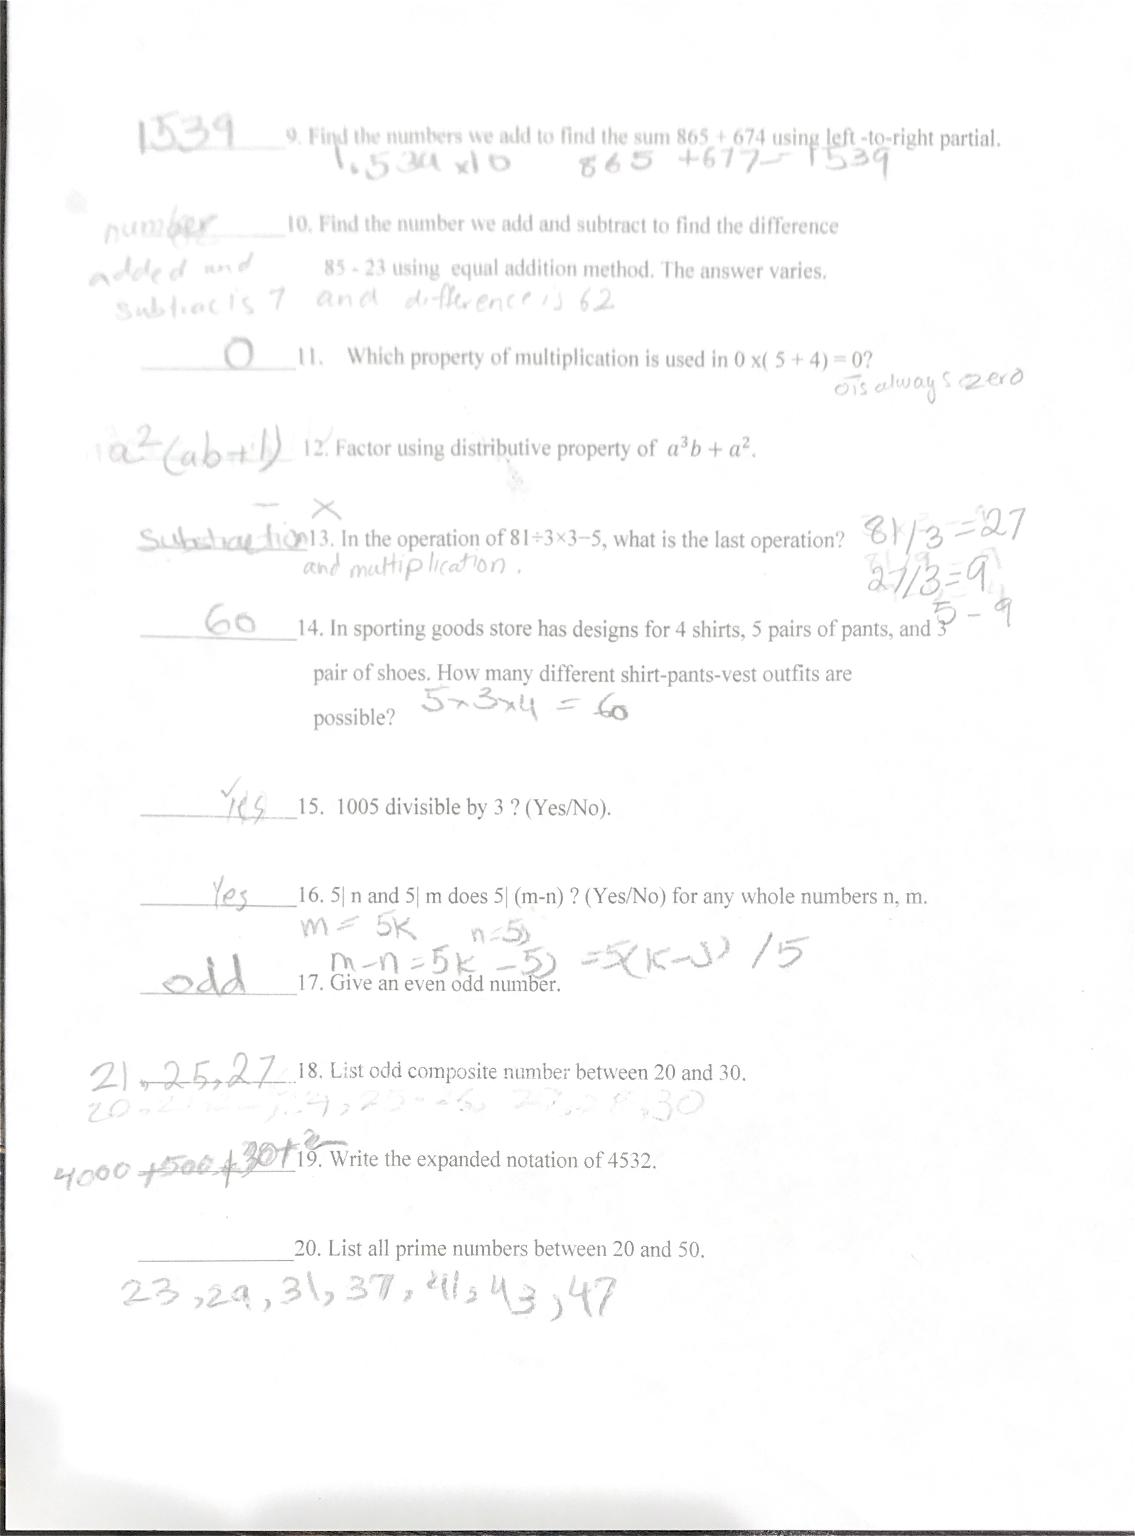 1539 9. Find the numbers we add to find the sum 865 + 674 using left -to-right partial.
1.539 x10 865 +677= 1539
number 10. Find the number we add and subtract to find the difference
added and 85 - 23 using equal addition method. The answer varies.
subtract is 7 and difference is 62
0 11. Which property of multiplication is used in 0 x( 5 + 4) = 0?
0 is always zero
a²(ab+1) 12. Factor using distributive property of a³b + a².
− ×
Substraction 13. In the operation of 81÷3×3−5, what is the last operation? 81/3 = 27
and multiplication. 27/3=9
5 - 9
60 14. In sporting goods store has designs for 4 shirts, 5 pairs of pants, and 3
pair of shoes. How many different shirt-pants-vest outfits are
possible? 5×3×4 = 60
Yes 15. 1005 divisible by 3 ? (Yes/No).
Yes 16. 5| n and 5| m does 5| (m-n) ? (Yes/No) for any whole numbers n, m.
m = 5k n=5j
m-n = 5k - 5j = 5(k-j) /5
odd 17. Give an even odd number.
21, 25, 27 18. List odd composite number between 20 and 30.
4000 +500 +30+2 19. Write the expanded notation of 4532.
20. List all prime numbers between 20 and 50.
23, 29, 31, 37, 41, 43, 47